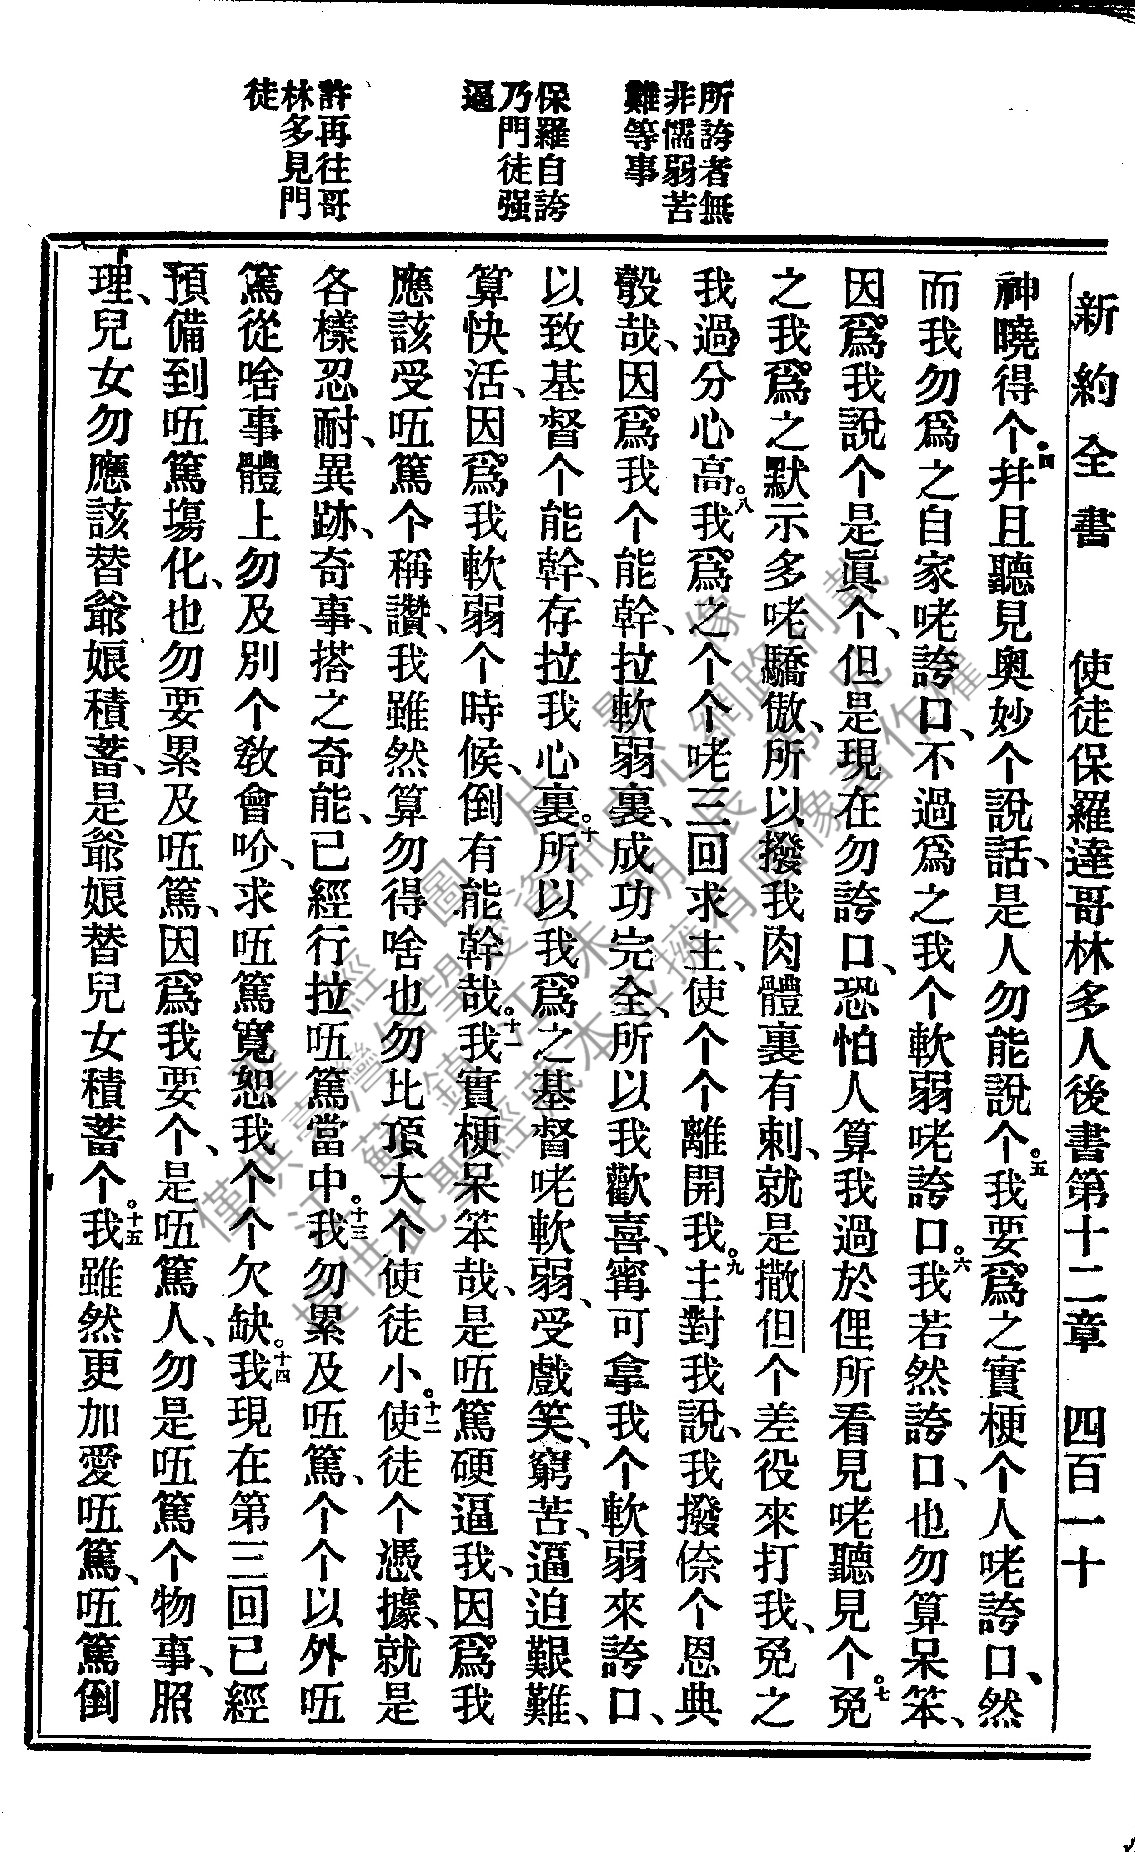 新約全書 使徒保羅達哥林多人後書第十二章 四百一十
所誇者無
非懦弱苦
難等事
保羅自誇
乃門徒强
逼
許再往哥
林多見門
徒
神曉得个。四幷且聽見奧妙个說話、是人勿能說个。五我要爲之實梗个人咾誇口、然
而我勿爲之自家咾誇口、不過爲之我个軟弱咾誇口。六我若然誇口、也勿算呆笨、
因爲我說个是眞个、但是現在勿誇口、恐怕人算我過於俚所看見咾聽見个。七免
之我爲之默示多咾驕傲、所以撥我肉體裏有刺、就是撒但个差役來打我、免之
我過分心高。八我爲之个个咾三回求主、使个个離開我。九主對我說、我撥倷个恩典
彀哉、因爲我个能幹、拉軟弱裏、成功完全、所以我歡喜、甯可拿我个軟弱來誇口、
以致基督个能幹、存拉我心裏。十所以我爲之基督咾軟弱、受戲笑、窮苦、逼迫艱難、
算快活、因爲我軟弱个時候、倒有能幹哉。十一我實梗呆笨哉、是㕶篤硬逼我、因爲我
應該受㕶篤个稱讚、我雖然算勿得啥、也勿比頂大个使徒小。十二使徒个憑據、就是
各樣忍耐、異跡、奇事、搭之奇能、已經行拉㕶篤當中。十三我勿累及㕶篤、个个以外㕶
篤從啥事體上勿及別个敎會吤、求㕶篤寬恕我个个欠缺。十四我現在第三回已經
預備到㕶篤塲化、也勿要累及㕶篤、因爲我要个、是㕶篤人、勿是㕶篤个物事、照
理、兒女勿應該替爺娘積蓄、是爺娘替兒女積蓄个。十五我雖然更加愛㕶篤、㕶篤倒